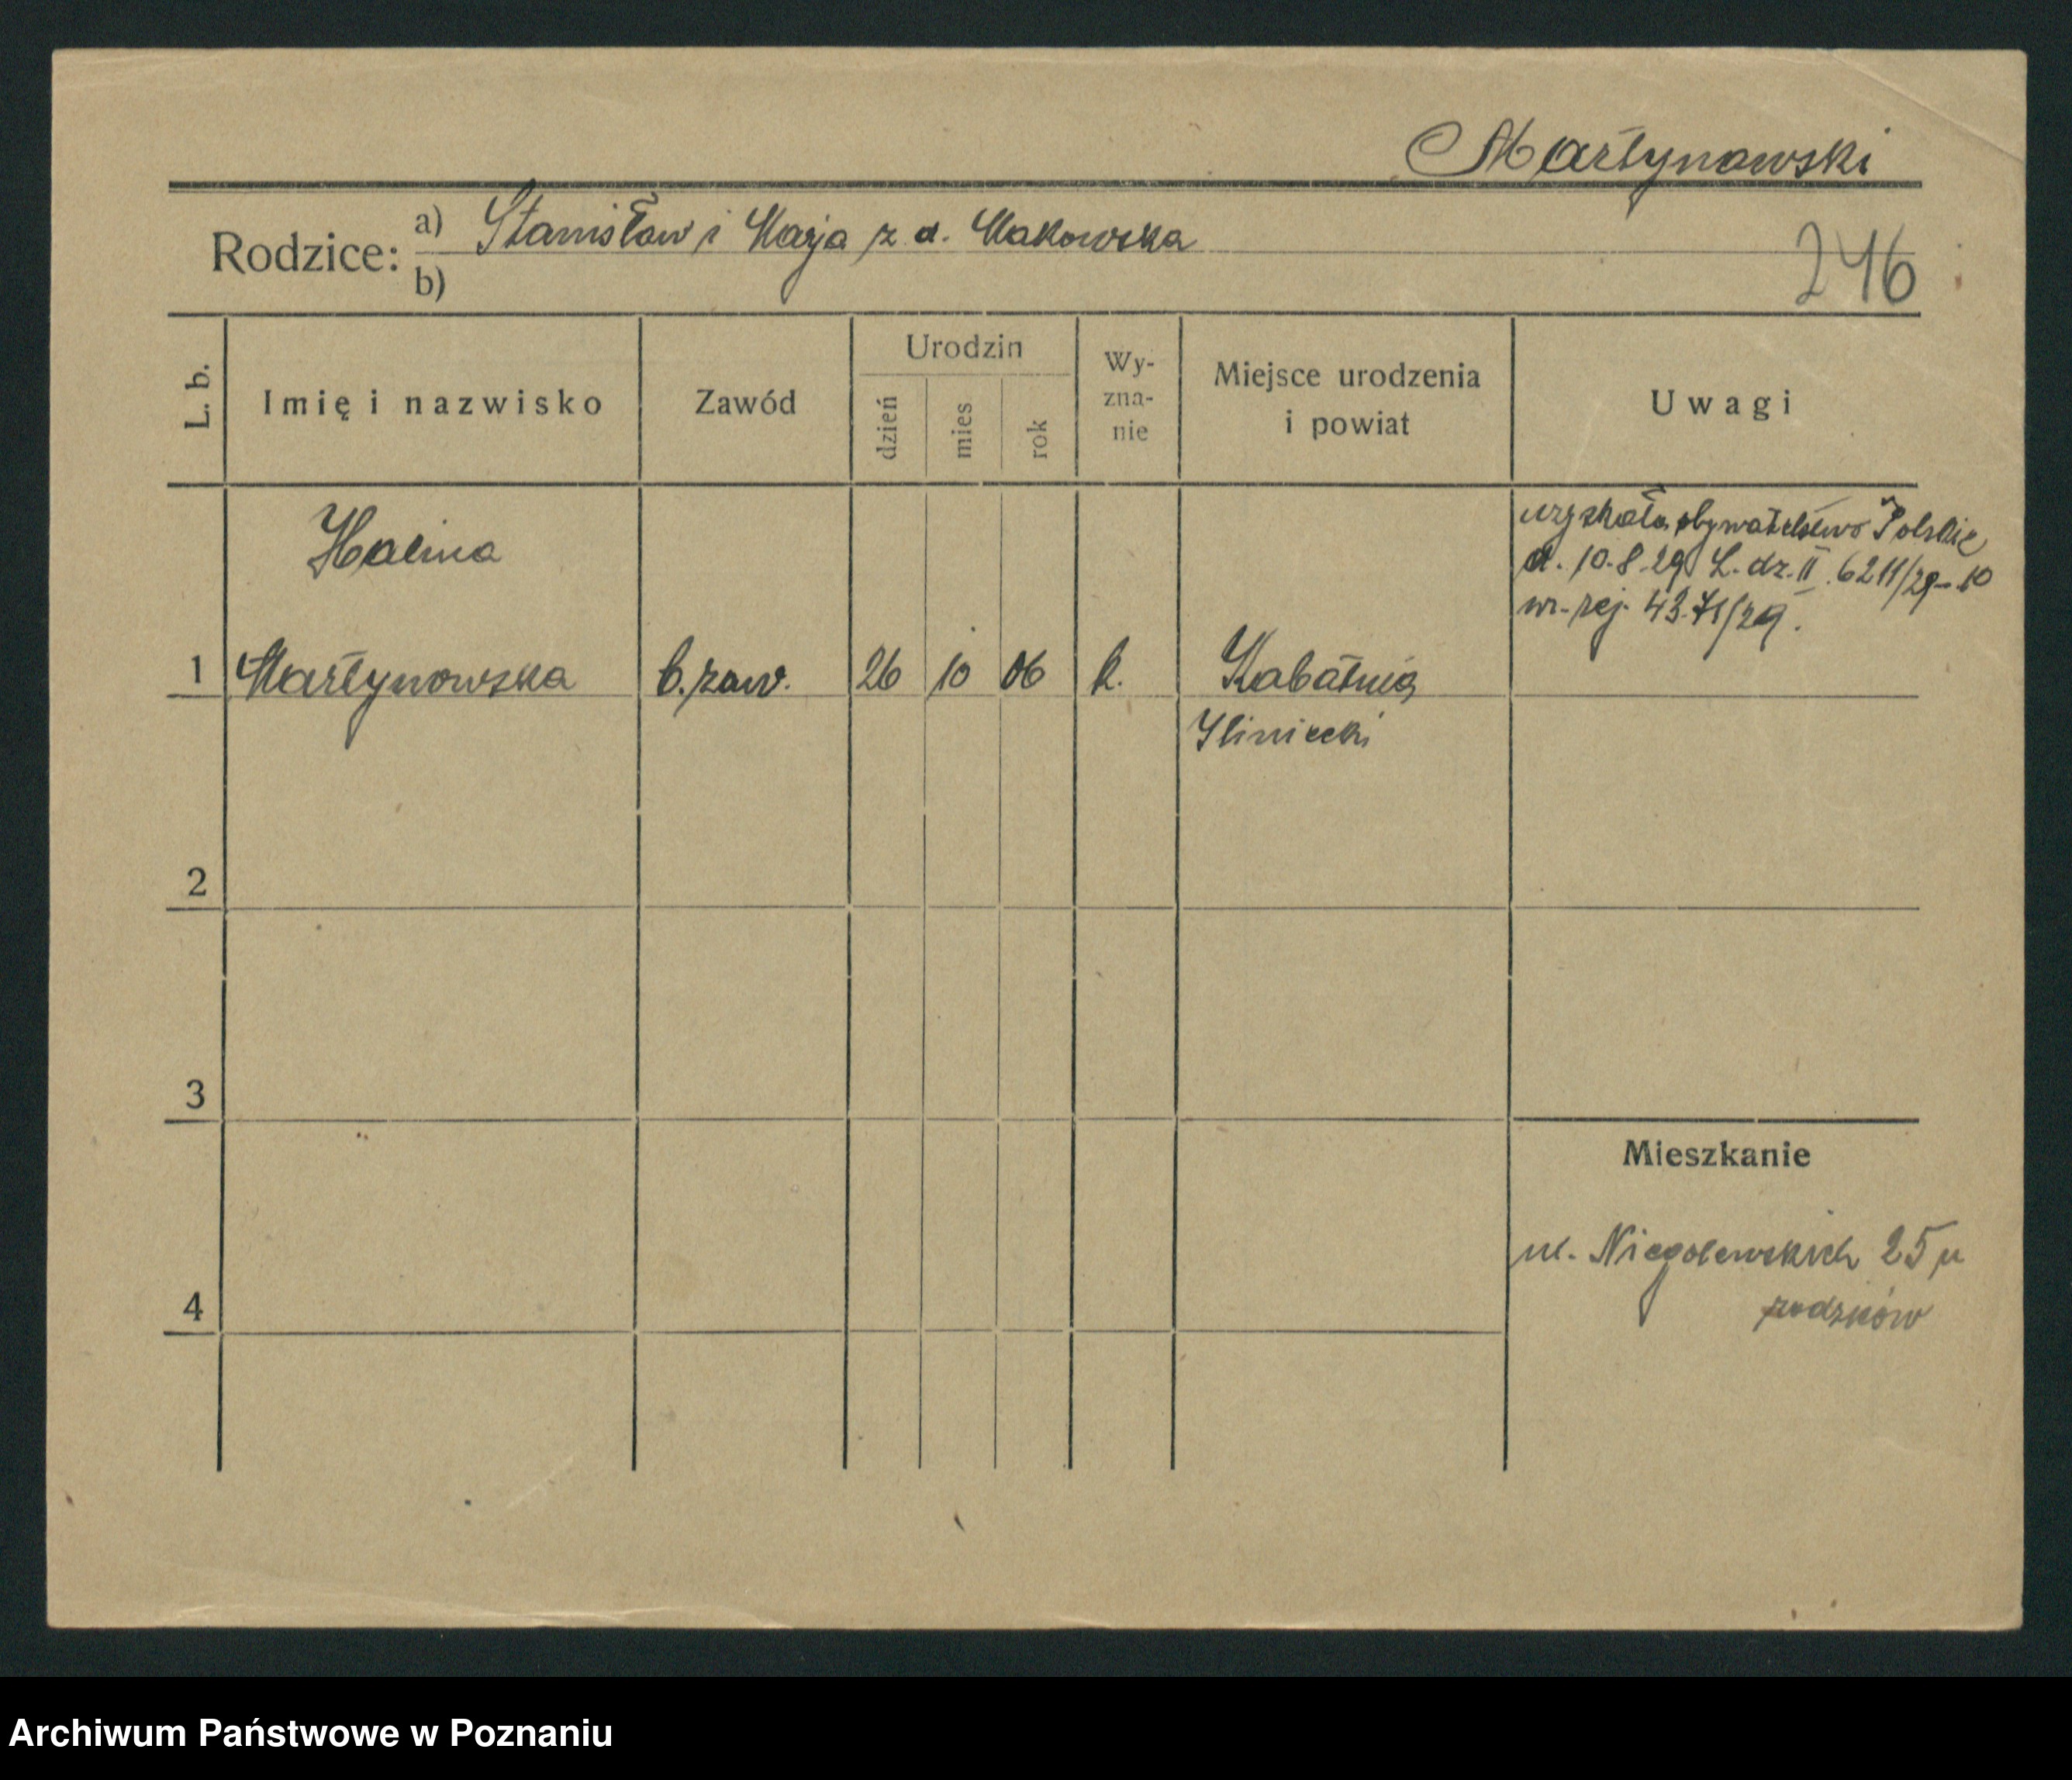 Martynowski
Rodzice: a) Stanisław i Marja z d. Makowska
b)
246
L. b.
Imię i nazwisko
Zawód
Urodzin
dzień
mies
rok
Wy-
zna-
nie
Miejsce urodzenia
i powiat
Uwagi
uzyskała obywatelstwo Polskie
d. 10.8.29 L. dz. II. 6211/29-10
nr. rej. 43.71/29.
Halina
1 Martynowska b. zaw. 26 10 06 k. Kabatnia
Iliniecki
2
3
4
Mieszkanie
ul. Niegolewskich 25 u
rodziców
Archiwum Państwowe w Poznaniu